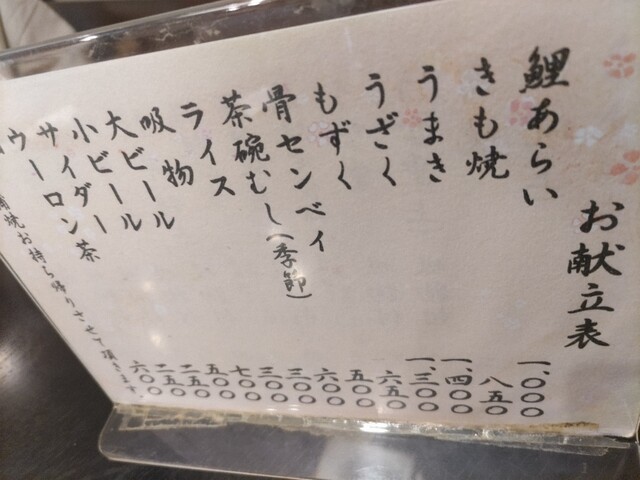 お献立表
鯉あらい 一、〇〇〇
きも焼 八五〇
うまき 一、四〇〇
うざく 一、三〇〇
もずく 六五〇
骨センベイ 五〇〇
茶碗むし(季節) 六〇〇
ライス 三〇〇
吸物 三〇〇
大ビール 七〇〇
小ビール 五〇〇
サイダー 二五〇
ウーロン茶 二五〇
六〇〇
焼お持ち帰りさせて頂きます。